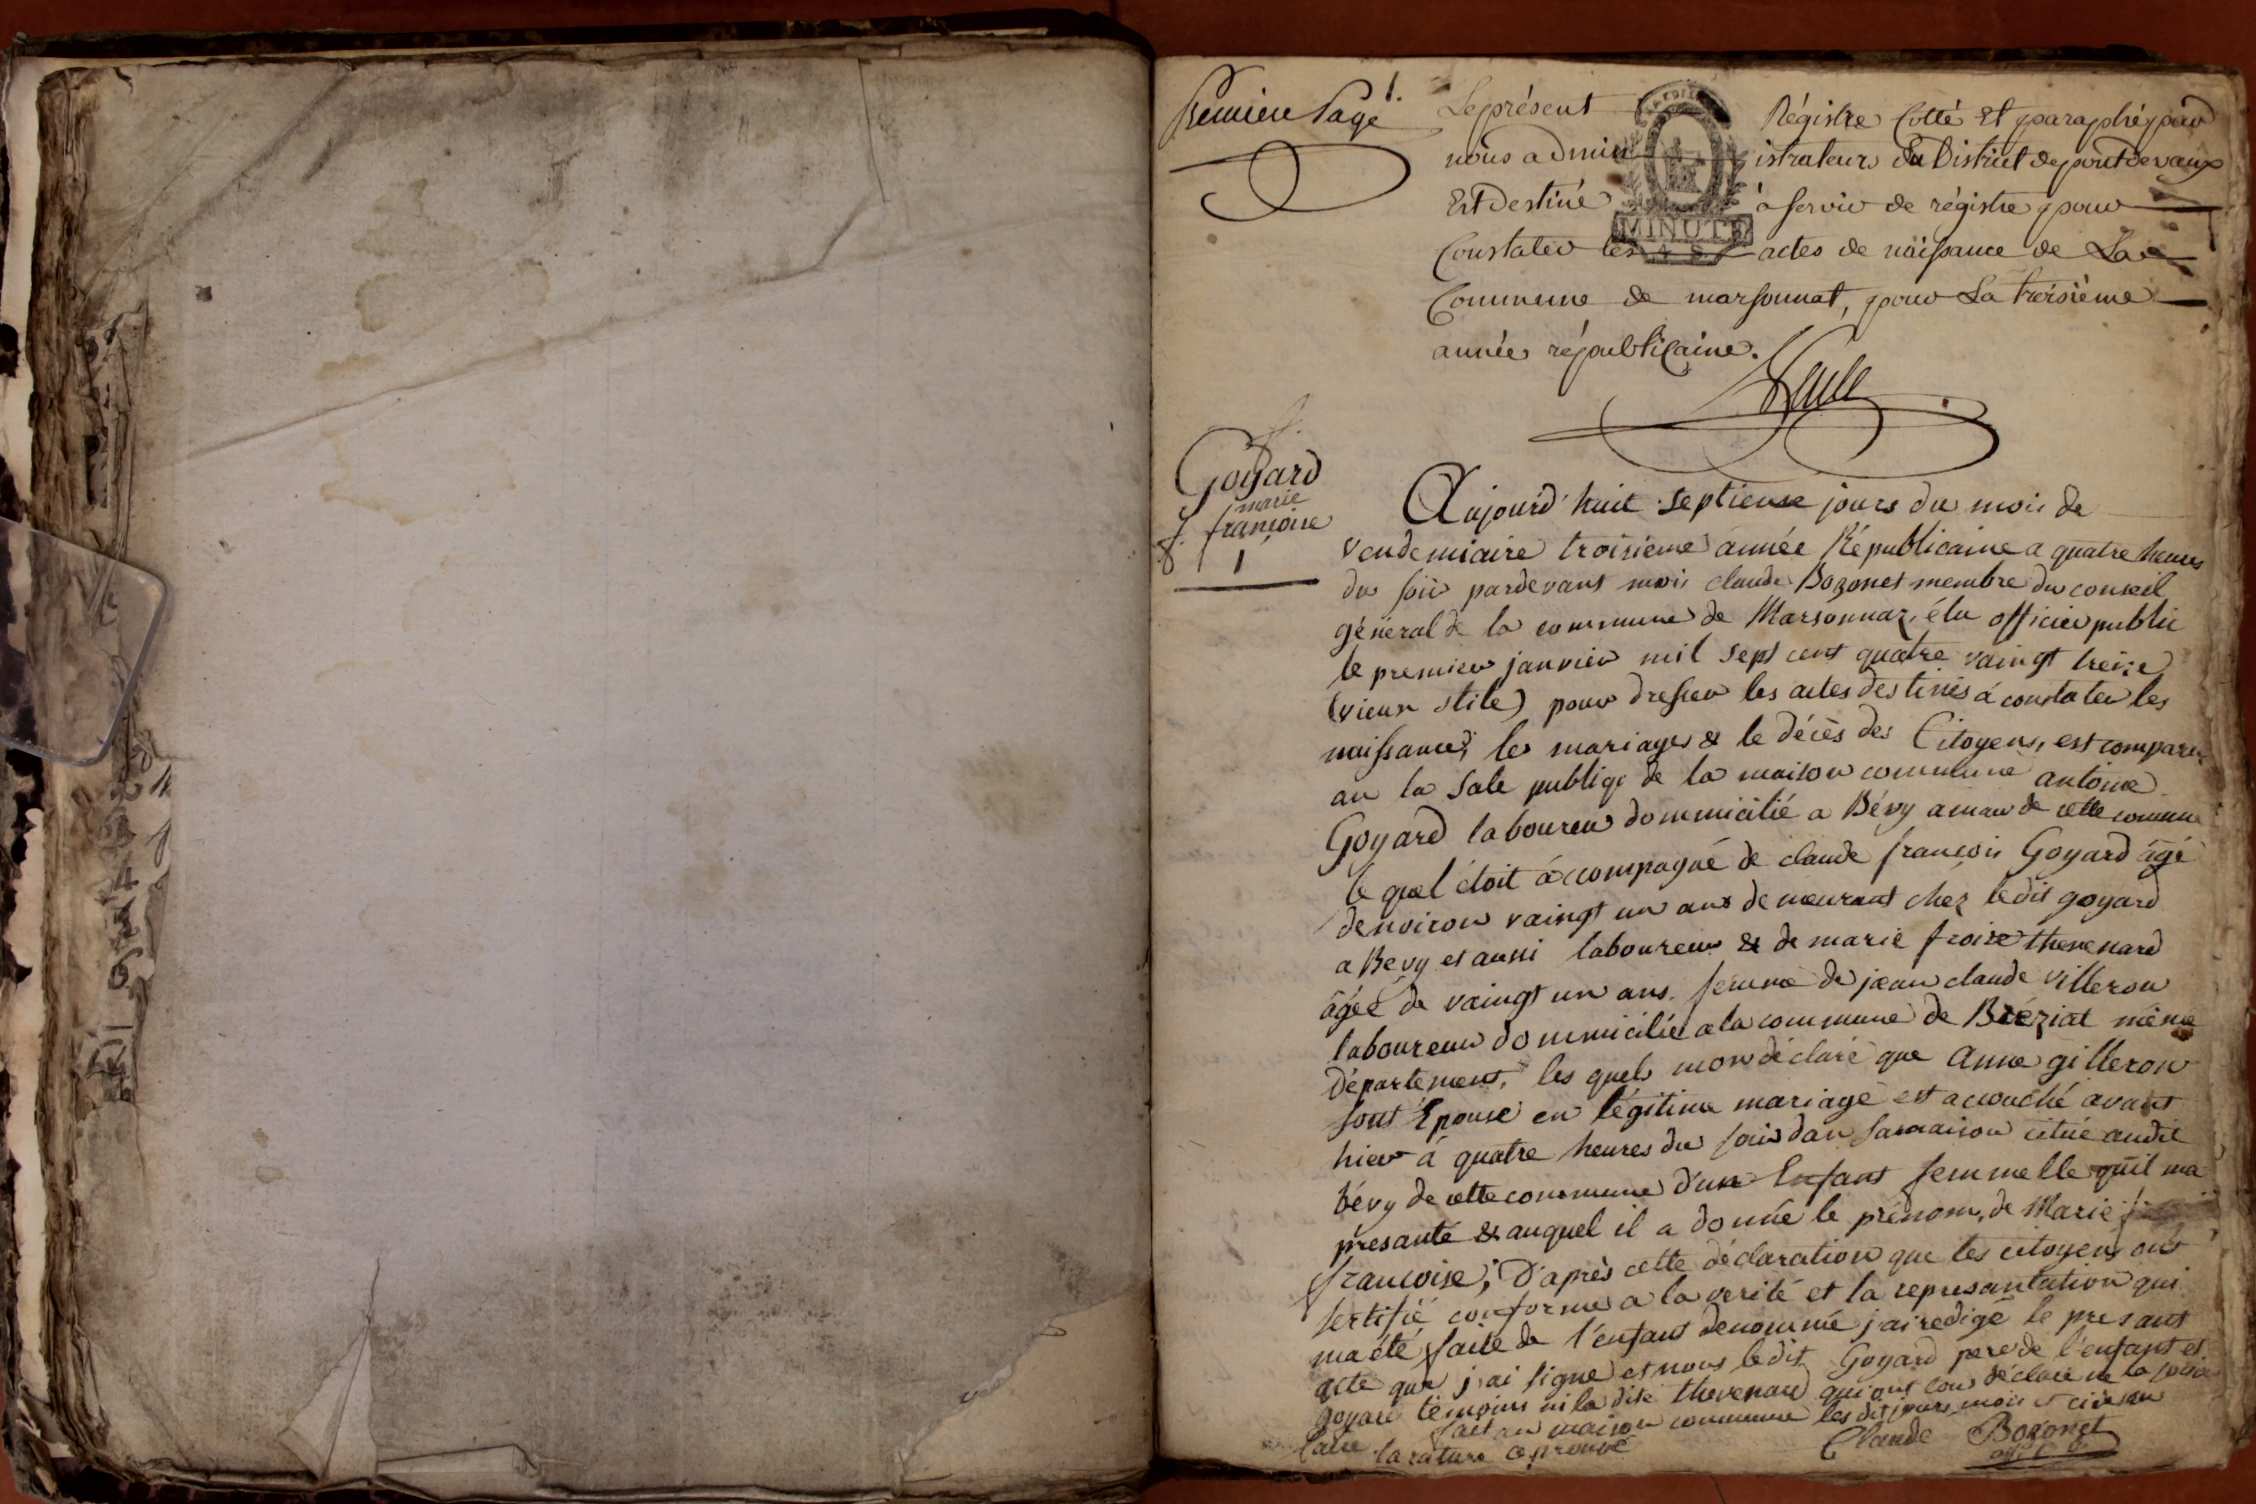 Premiere Page 1.
Le présent Régistre Cotté Et paraphé par
nous administrateurs du District de pontdevaux
Est Destiné à servir de régistre pour
MINUTE
Constater les actes de naissance de La
Commune de marsonnat, pour La troisième
année républicaine.
Goyard
marie
françoise
1
Aujourd'huit septieme jours du mois de
vendemiaire troisieme année Républicaine a quatre heures
du soir pardevant mois claude Bozonet membre du conseil
général de la commune de Marsonnaz, élu officier public
le premier janvier mil sept cent quatre vaingt treize
(vieux stile) pour dresser les actes destinés à constater les
naissances, les mariages & le décès des Citoyens, est comparu
an la sale publiqe de la maison commune antoine
Goyard laboureur dommicilié a Bévy amau de cette comune
le quel étoit accompagné de claude françois Goyard âgé
denviron vaingt un ans demeurant chez ledit goyard
a Bevy et aussi laboureur & de marie froise thevenard
âgée de vaingt un ans femme de jean claude villeron
laboureur dommiciliée a la commune de Bréziat même
Département, les quels mon déclaré que Anne gilleron
sont Epouse en légitime mariage est acouché avant
hier à quatre heures du soir dan samaison citué audit
bévy de cette commune d'un Enfant femmelle qu'il ma
présanté & auquel il a donnée le prénom, de Marie
francoise; D'après cette déclaration que les citoyens ont
sertifié conforme a la verité et la represantation qui
ma été faite de l'enfant denommé j'ai redigé le presant
acte que j'ai signé et nous ledit Goyard pere de l'enfant et
goyard témoins ni la dite thevenard qui ont tous déclaré ne la
faire fait an maison commune les dit jours mois et
la rature aprouvé
Claude Bozonet